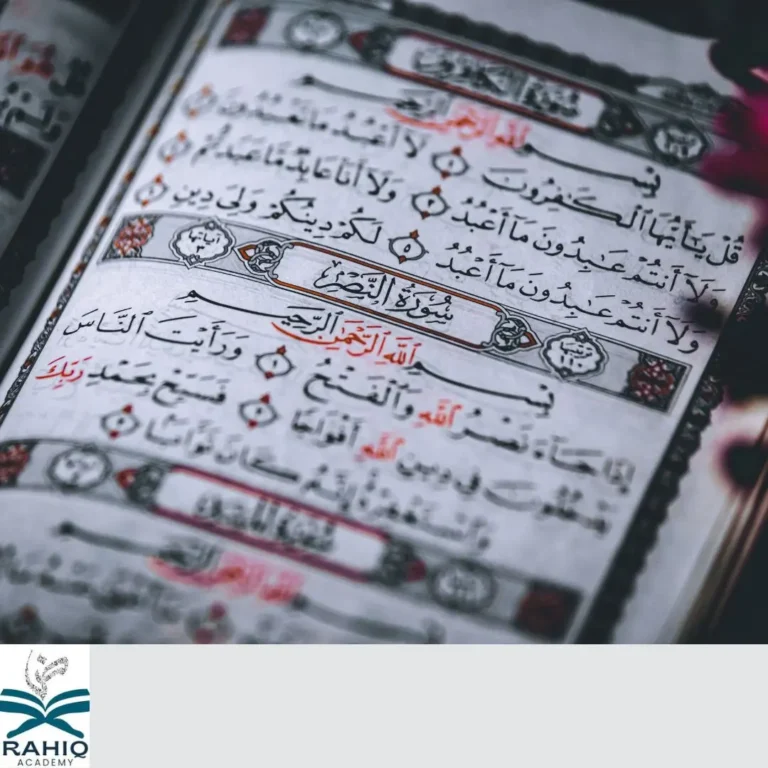 سُورَةُ الكَافِرُونَ
بِسْمِ اللَّهِ الرَّحْمَٰنِ الرَّحِيمِ
قُلْ يَٰٓأَيُّهَا ٱلْكَٰفِرُونَ ١ لَآ أَعْبُدُ مَا تَعْبُدُونَ ٢
وَلَآ أَنتُمْ عَٰبِدُونَ مَآ أَعْبُدُ ٣ وَلَآ أَنَا۠ عَابِدٌ مَّا عَبَدتُّمْ ٤
وَلَآ أَنتُمْ عَٰبِدُونَ مَآ أَعْبُدُ ٥ لَكُمْ دِينُكُمْ وَلِيَ دِينِ ٦
سُورَةُ النَّصْرِ
بِسْمِ اللَّهِ الرَّحْمَٰنِ الرَّحِيمِ
إِذَا جَآءَ نَصْرُ ٱللَّهِ وَٱلْفَتْحُ ١ وَرَأَيْتَ ٱلنَّاسَ
يَدْخُلُونَ فِي دِينِ ٱللَّهِ أَفْوَاجًا ٢ فَسَبِّحْ بِحَمْدِ رَبِّكَ
وَٱسْتَغْفِرْهُ إِنَّهُۥ كَانَ تَوَّابًۢا ٣
RAHIQ
ACADEMY